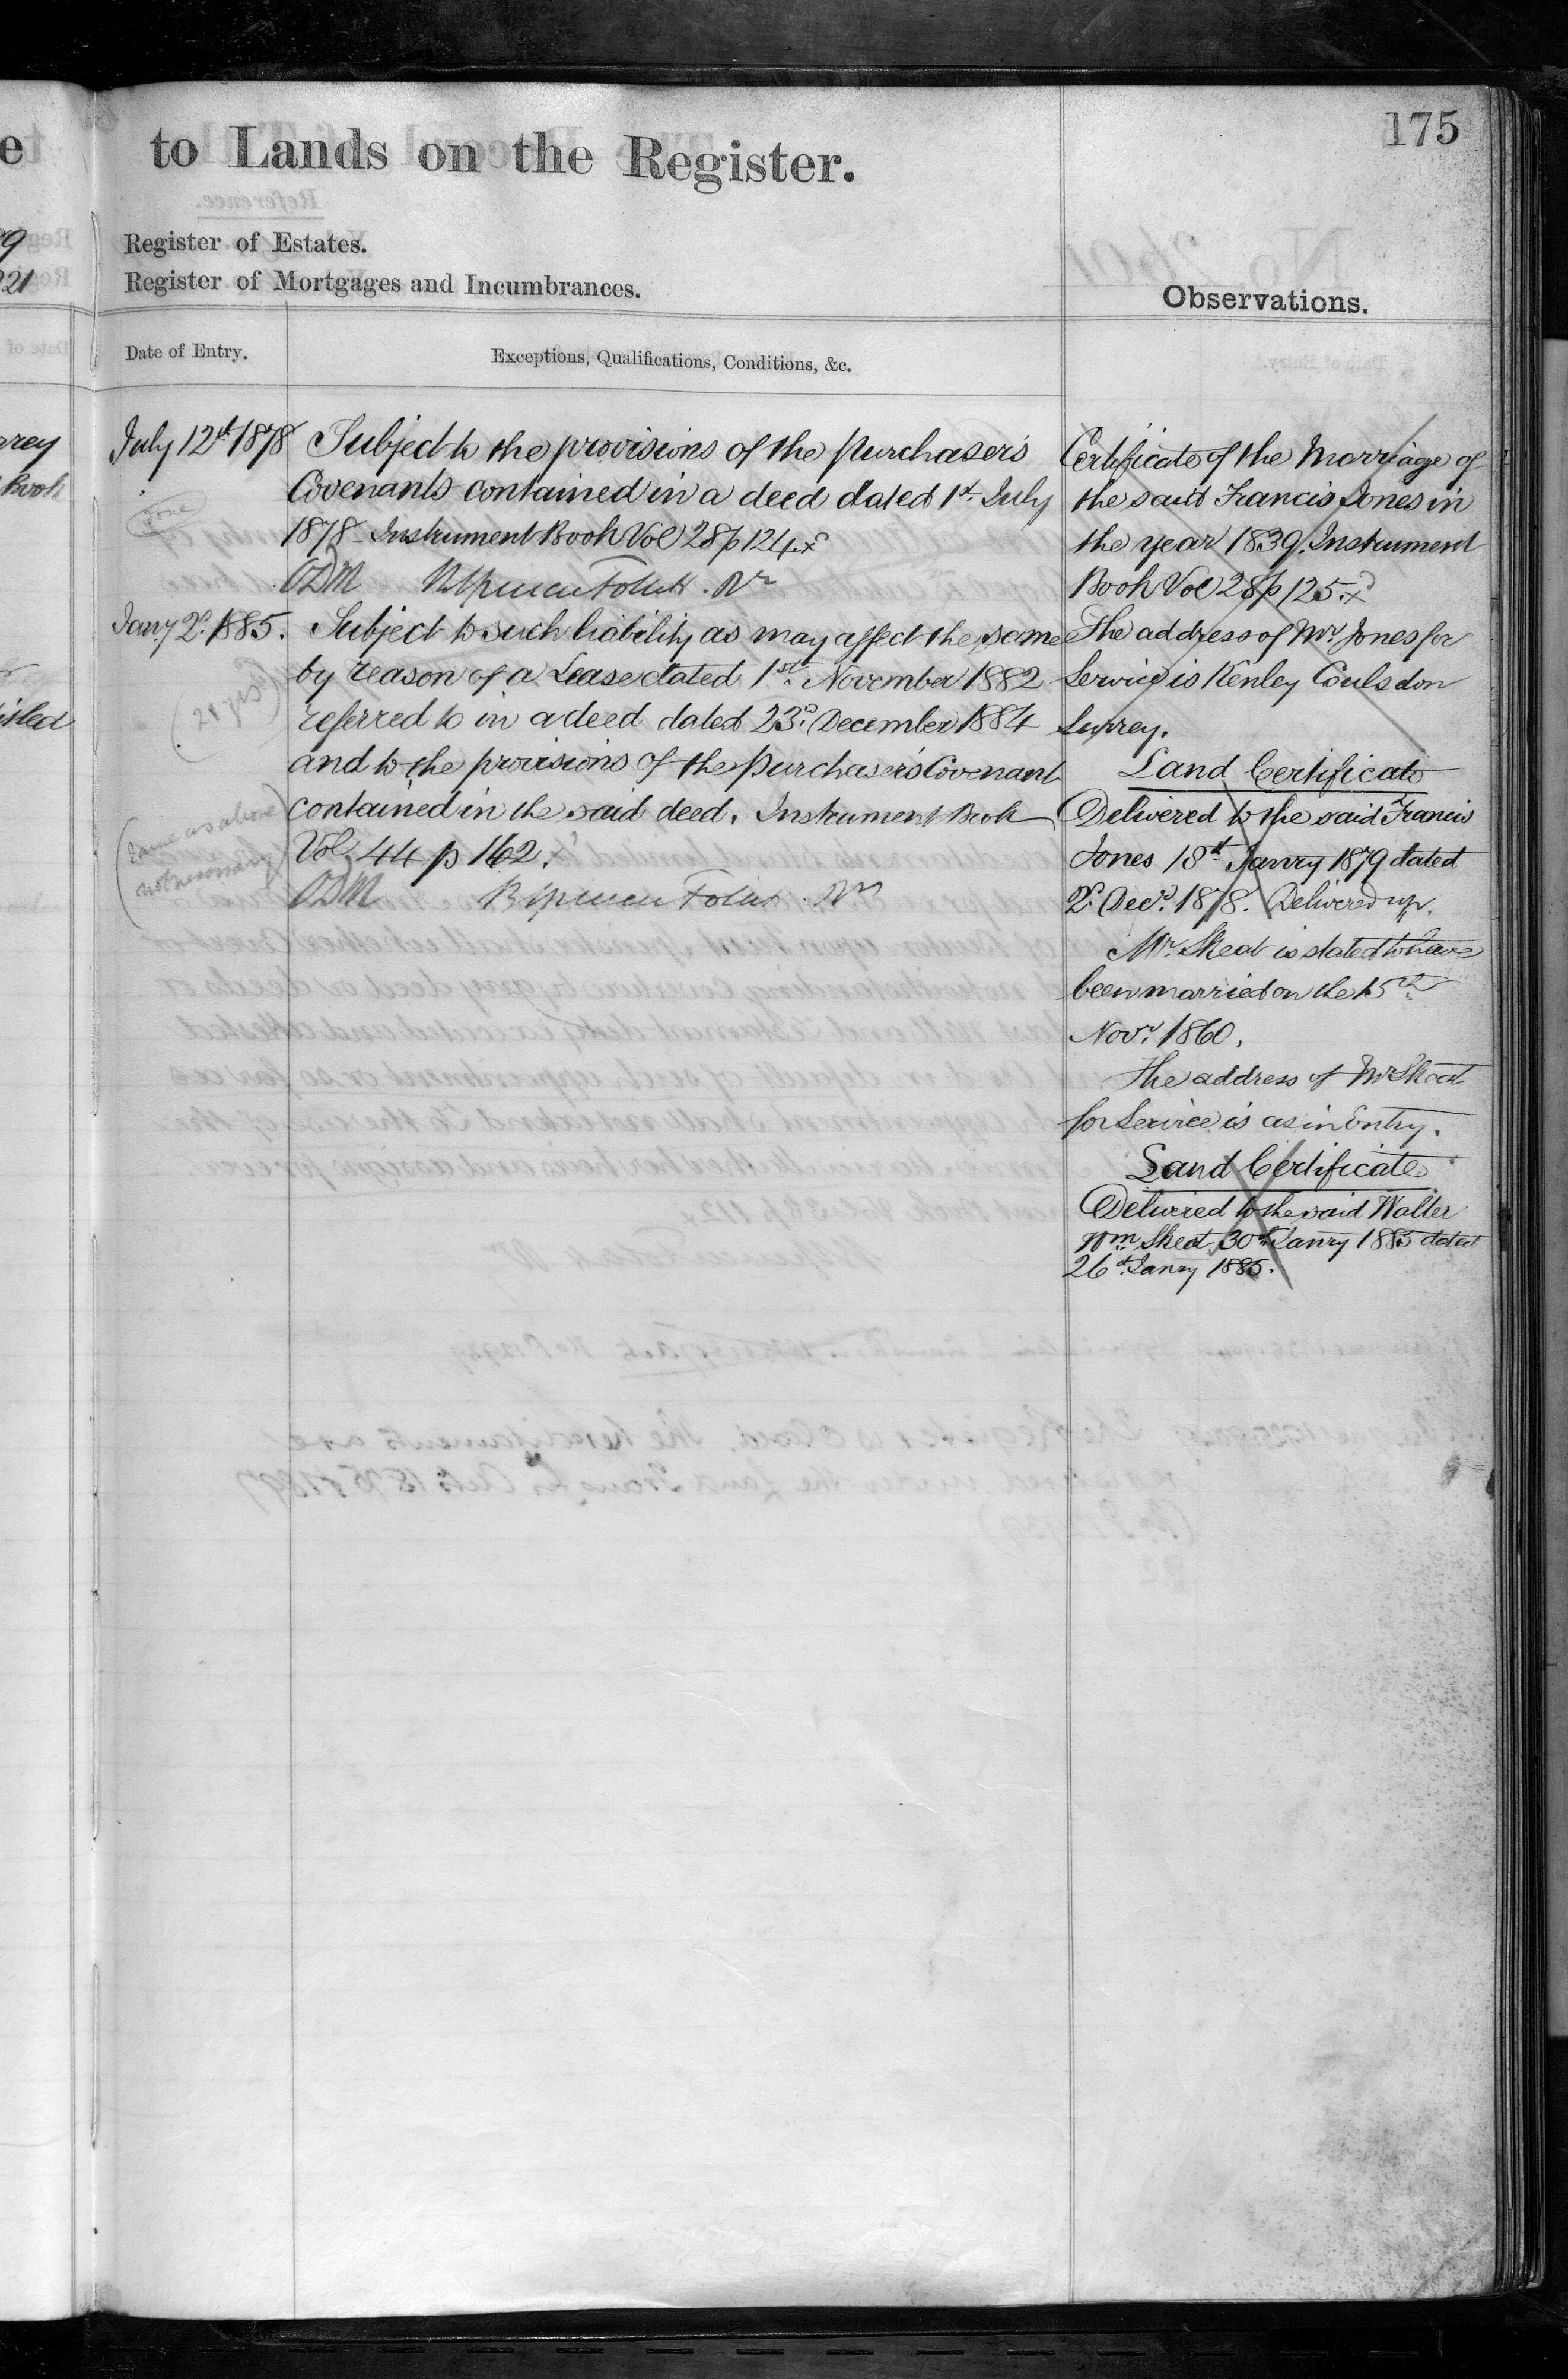 175
to Lands on the Register.
Register of Estates.
Register of Mortgages and Incumbrances.
Observations.
Date of Entry.
Exceptions, Qualifications, Conditions, &c.
July 12th 1878
Subject to the provisions of the purchaser's
Covenants contained in a deed dated 1st July
1878 - Instrument Book Vol 28 p 124.
ODM
Jany 2d. 1885.
Subject to such liability as may affect the same
by reason of a Lease dated 1st. November 1882
referred to in a deed dated 23d. December 1884
and to the provisions of the purchasers Covenant
contained in the said deed. Instrument Book
Vol. 44 p 162.
ODM
(21 yrs)
(same as above
not necessary)
Certificate of the Marriage of
the said Francis Jones in
the year 1839. Instrument
Book Vol 28 p 125.
The address of Mr. Jones for
Service is Kenley Coulsdon
Surrey.
Land Certificate
Delivered to the said Francis
Jones 18th Janry 1879 dated
2d. Decr. 1878. Delivered up.
Mr. Skeat is stated to have
been married on the 15th
Novr. 1860.
The address of Mr Skeat
for Service is as in Entry.
Land Certificate
Delivered to the said Walter
Wm. Skeat 30th Janry 1885 dated
26th Janry 1885.
e
9
221
rrey
Book